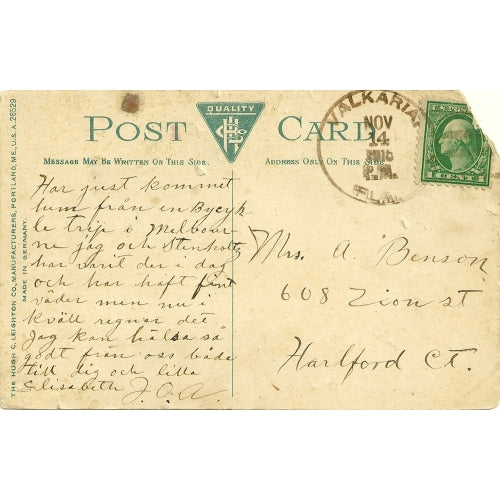 QUALITY
POST CARD
MESSAGE MAY BE WRITTEN ON THIS SIDE.
ADDRESS ONLY ON THIS SIDE
VALKARIA
NOV
14
1916
P.M.
FLA.
1 CENT 1
THE HUGH C. LEIGHTON CO., MANUFACTURERS, PORTLAND, ME., U.S.A. 26529
MADE IN GERMANY.
Har just kommet
hum från en Bycyk
le trip i Melbour
ne jag och Stenholtz
har varit der i dag
och har haft fint
väder men nu i
kväll regnar det
Jag kan hälsa så
godt från oss båda
till dig och lilla
Elisabeth J.O.A.
Mrs. A. Benson
608 Zion st
Hartford Ct.